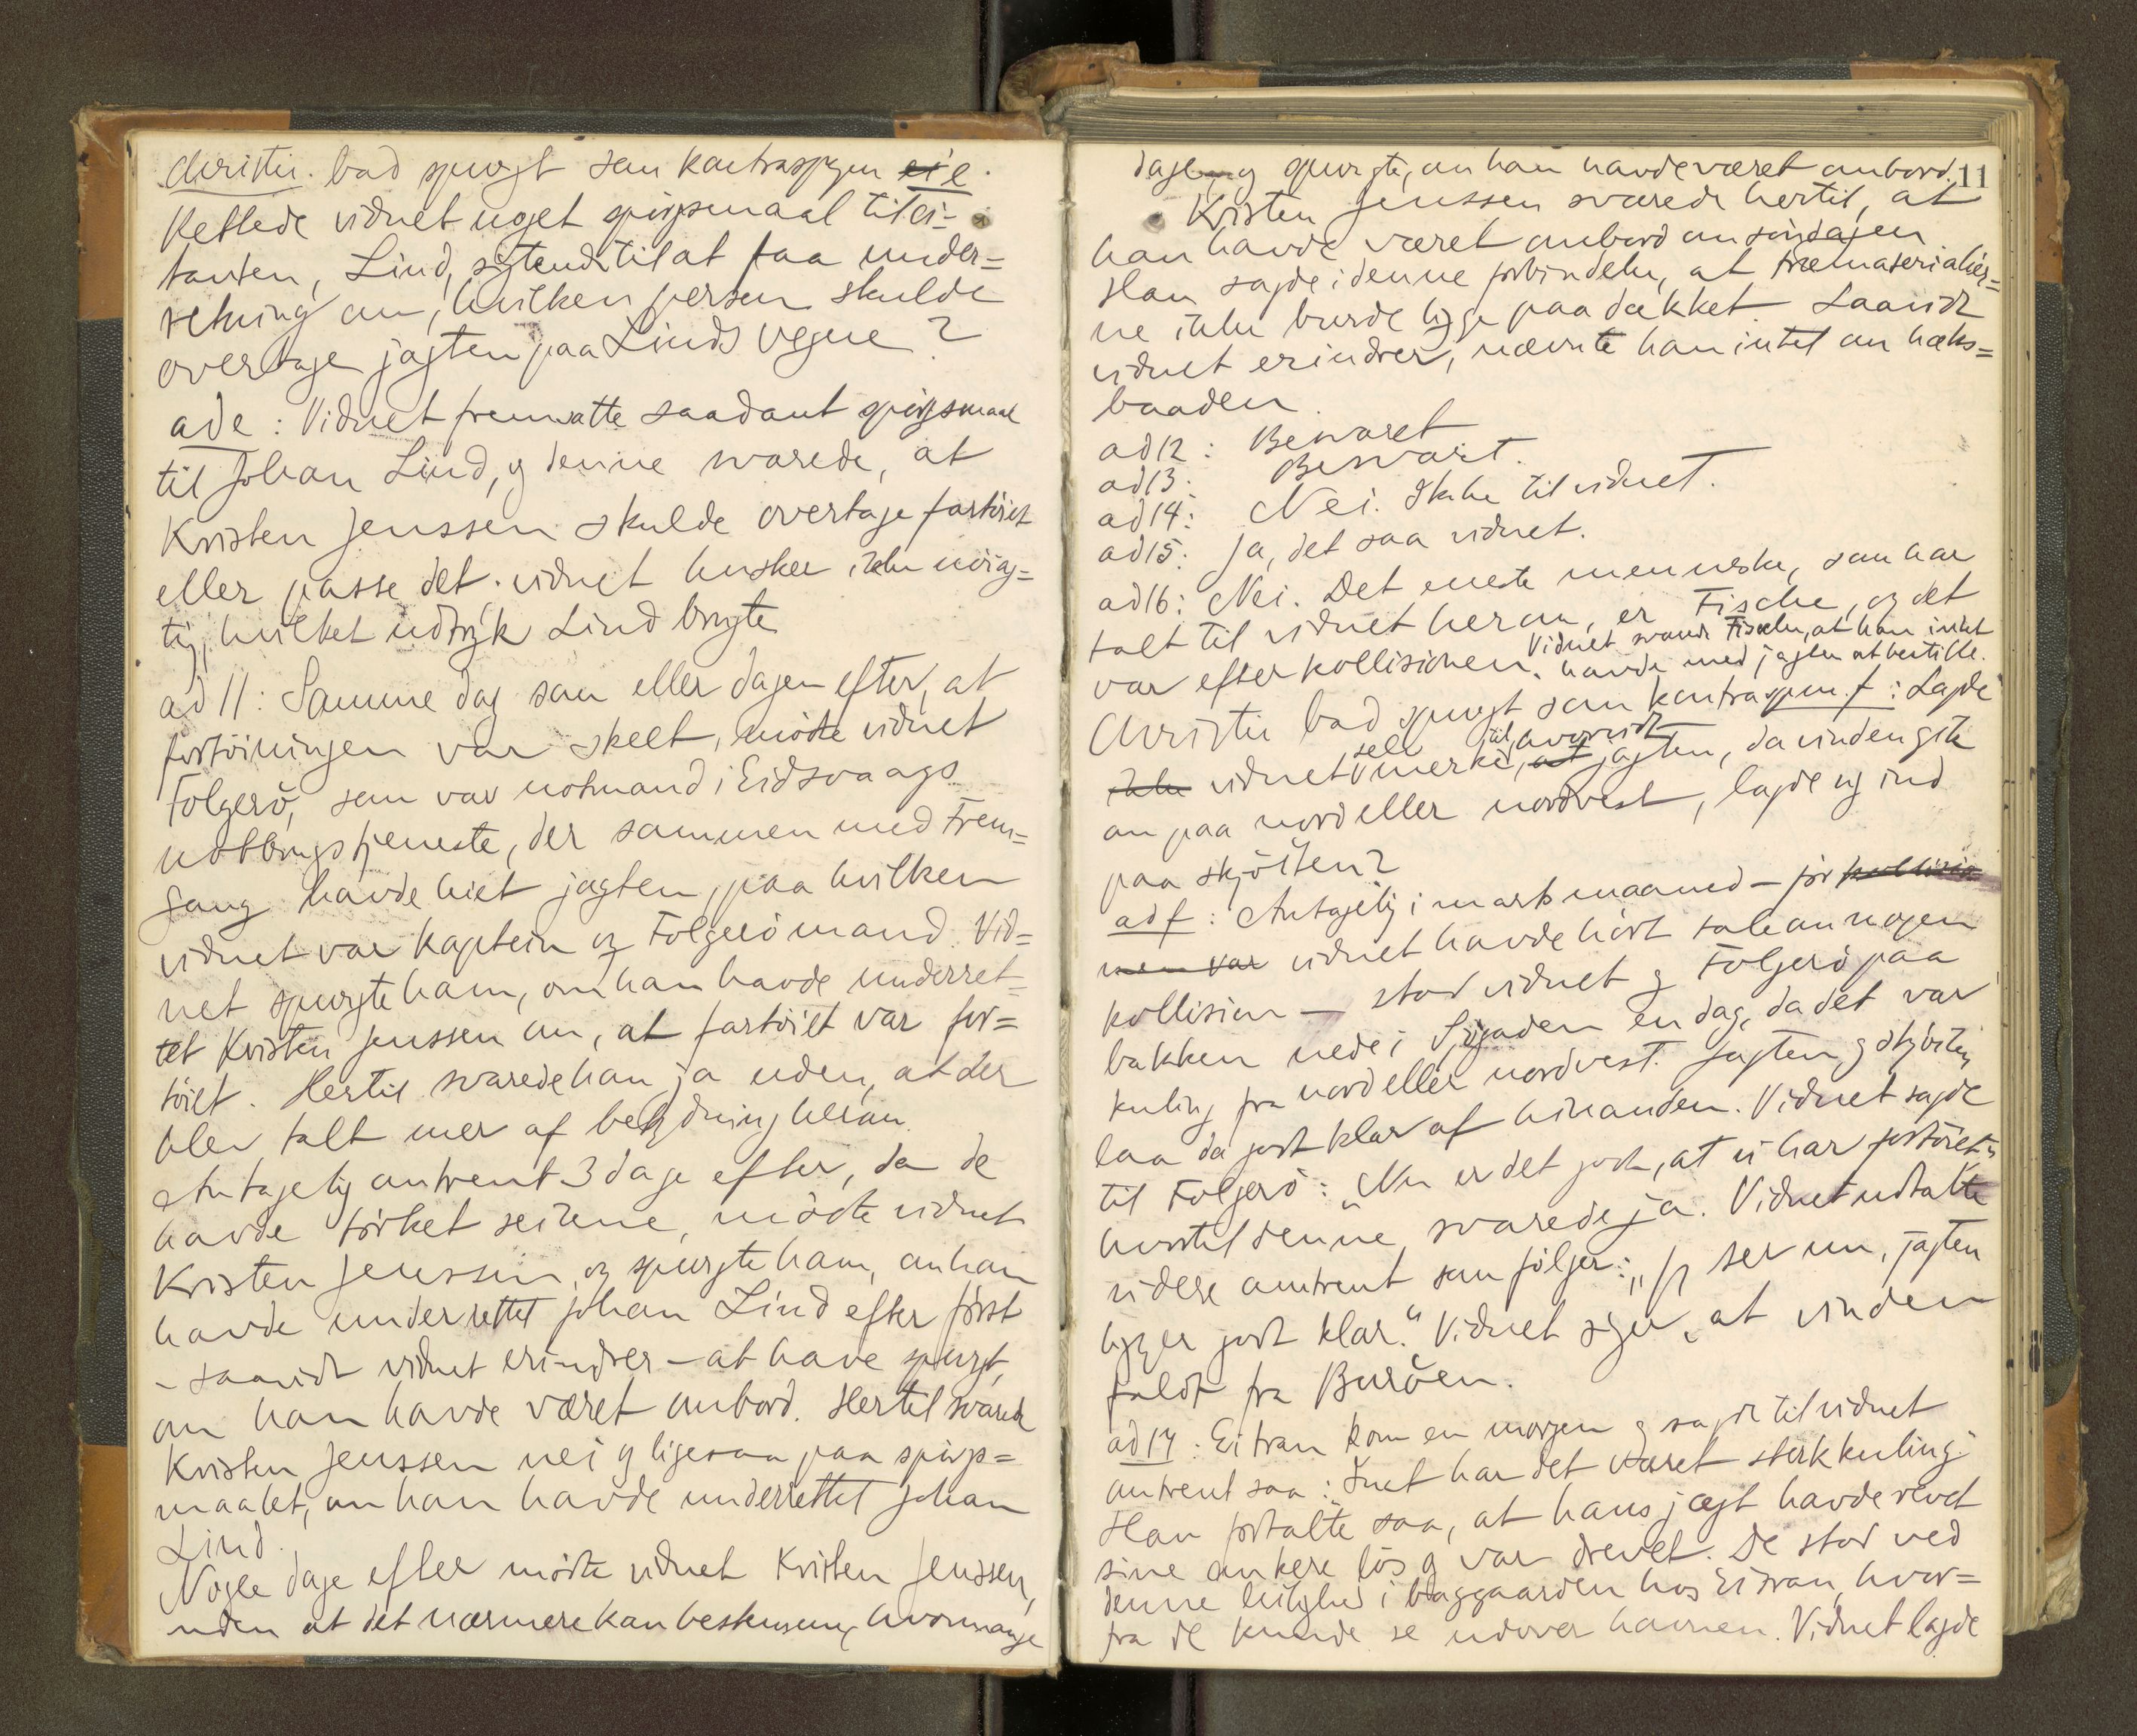 Christie. bad spurgt som kontraspgsm e.
Rettede vidnet noget spörgsmaal til ci=
tanten, Lind, sigtende til at faa under=
retning om, hvilken person skulde
overtage jagten paa Linds vegne?
ad e: Vidnet fremsatte saadant spörgsmaal
til Johan Lind, og denne svarede, at
Kristen Jenssen skulde overtage fartöiet
eller passe det. vidnet husker ikke nöiag=
tig, hvilket udtryk Lind brugte
ad 11: Samme dag som eller dagen efter, at
fortöiningen var skeet, mödte vidnet
Folgerö, som var notmand i Eidsvaags
notbrugstjeneste, der sammen med Frem=
gang havde leiet jagten, paa hvilken
vidnet var kaptein og Folgerö mand. Vid=
net spurgte ham, om han havde underret=
tet Kristen Jenssen om, at fartöiet var for=
töiet. Hertil svarede han ja uden, at der
blev talt mer af betydning herom.
Antagelig omtrent 3 dage efter, da de
havde törket seilene, mödte vidnet
Kristen Jenssen og spurgte ham, om han
havde underrettet Johan Lind efter först
- saavidt vidnet erindrer - at have spurgt,
om han havde været ombord. Hertil svarede
Kristen Jenssen nei og ligesaa paa spörgs=
maalet, om han havde underrettet Johan
Lind.
Nogle dage efter mödte vidnet Kristen Jenssen,
uden at det nærmere kan bestemme, hvormange
11
dage, og spurgte, om han havde været ombord.
Kristen Jenssen svarede hertil, at
han havde været ombord om söndagen.
Han sagde i denne forbindelse, at træmaterialier=
ne ikke burde ligge paa dækket. Saavidt
vidnet erindrer, nævnte han intet om hæks=
baaden.
ad 12: Besvaret
ad 13: Besvart.
ad 14: Nei. Ikke til vidnet.
ad 15: Ja, det saa vidnet.
ad 16: Nei. Det eneste menneske, som har
talt til vidnet herom, er Fische, og det
var efter kollisionen. Vidnet svarede Fische, at han intet
havde med jagten at bestille.
Christie bad spurgt som kontraspsm. f: Lagde
ikke vidnet selv merke til, hvorvidt jagten, da vinden gik
om paa nord eller nordvest, lagde sig ind
paa skjöiten?
ad f: Antagelig i marts maaned - för kollision
men var vidnet havde hört tale om nogen
kollision - stod vidnet og Folgerö paa
bakken nede i Sjögaden en dag, da det var
kuling fra nord eller nordvest. Jagten og skjöiten
laa da godt klar af hinanden. Vidnet sagde
til Folgerö: „Nu er det godt, at vi har fortöiet",
hvortil denne svarede ja. Vidnet udtalte
videre omtrent som fölger: „Jeg ser nu, jagten
ligger godt klar." Vidnet siger, at vinden
faldt fra Buröen.
ad 17: Eitran kom en morgen og sagde til vidnet
omtrent saa: Inat har det været sterk kuling.
Han fortalte saa, at hans jægt havde revet
sine ankere lös og var drevet. De stod ved
denne leilighed i baggaarden hos Eitran, hvor=
fra de kunde se udover havnen. Vidnet lagde